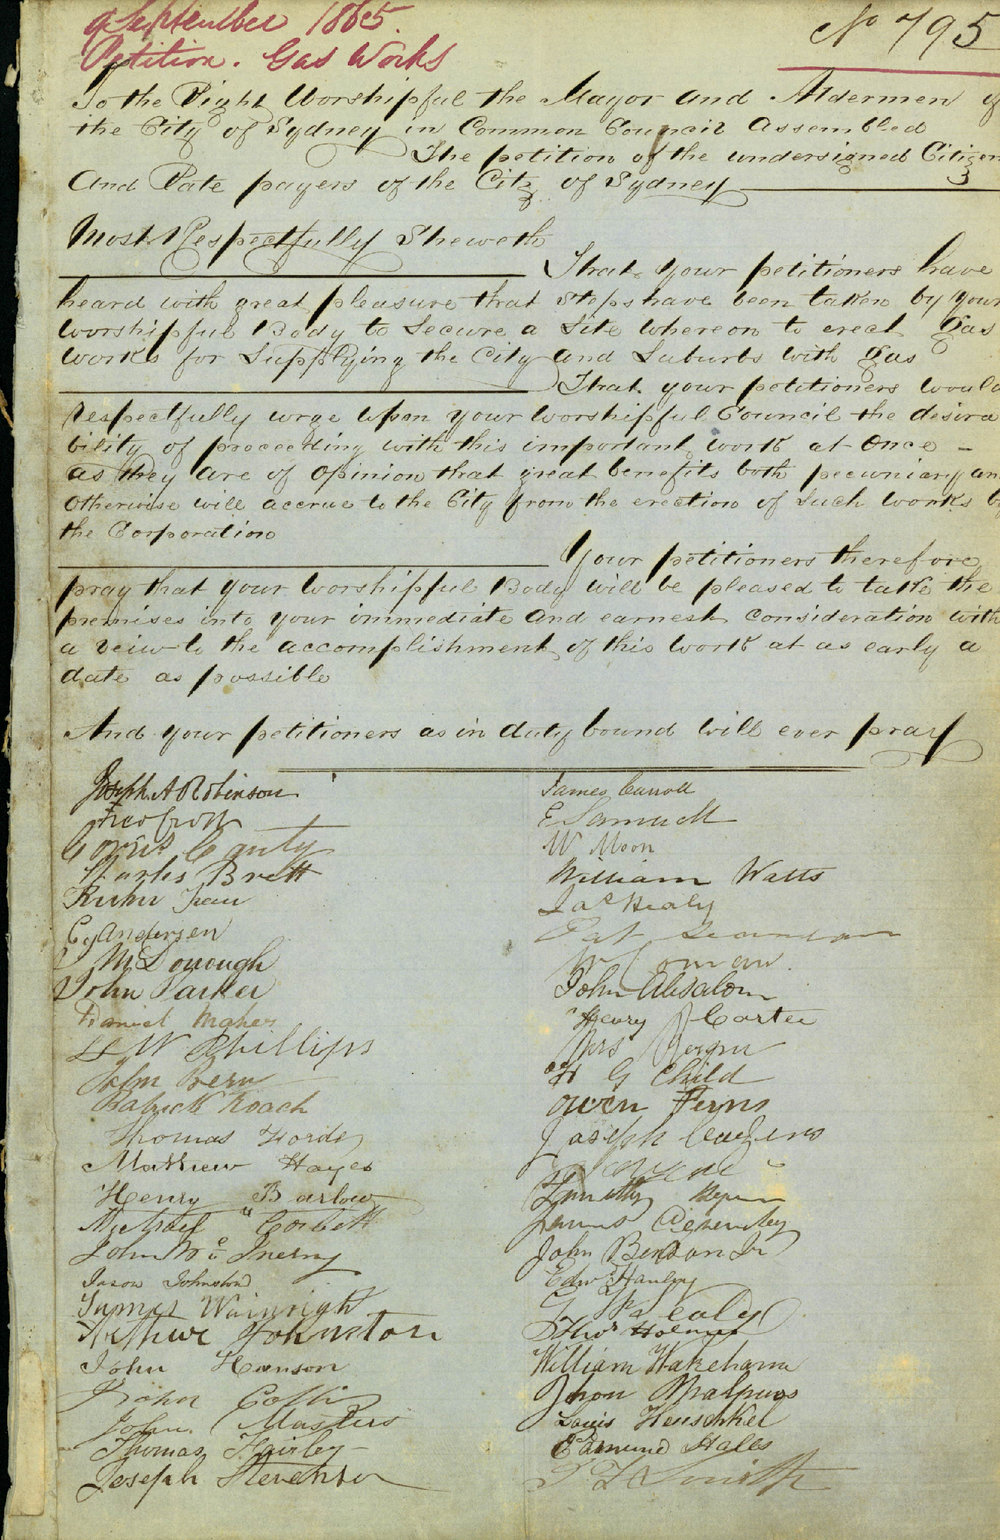 9 September 1865.
Petition. Gas Works
No 795
To the Right Worshipful the Mayor and Aldermen of
the City of Sydney in Common Council Assembled
The petition of the undersigned Citizens
And Rate payers of the City of Sydney
Most Respectfully Sheweth
That your petitioners have
heard with great pleasure that Steps have been taken by your
Worshipful Body to Secure a Site whereon to erect gas
works for Supplying the City and Suburbs with gas
That your petitioners would
respectfully urge upon your Worshipful Council the desira
bility of proceeding with this important work at once -
as they are of opinion that great benefits both pecuniary an
otherwise will accrue to the City from the erection of Such works by
the Corporation
Your petitioners therefore
pray that your Worshipful Body will be pleased to take the
premises into your immediate and earnest consideration with
a veiw to the accomplishment of this work at as early a
date as possible
And your petitioners as in duty bound will ever pray
Joseph A Robinson
Canty
Charles Brett
Andersen
McDonough
John Parker
Daniel Maher
W Phillips
John
Patrick Roach
Thomas Forde
Mathew Hayes
Henry Barlow
Michael Corbett
John McInerny
Jason Johnston
James Wainright
Arthur Johnston
John Hanson
John Masters
Thomas Fairley
Joseph Stevenson
James Carroll
E Samuell
W Moon
William Watts
Jas Healy
Pat
John Absalom
Henry J Carter
Mrs
H G Child
Owen Ferns
Joseph
Timothy
James
John Benson Jr
Edw Hanley
Thos Holmes
William Wakeham
Malpuss
Louis Heuschkel
Edmund Hales
Smith